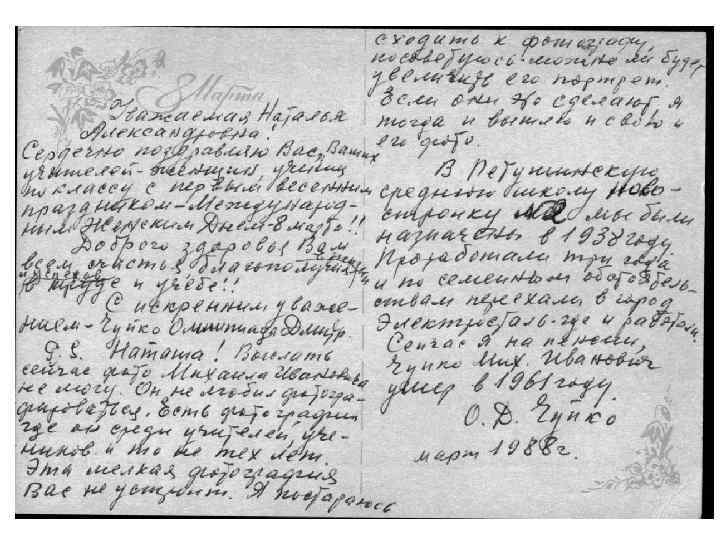 8 Марта
Уважаемая Наталья
Александровна!
Сердечно поздравляю Вас, Ваших
учителей-женщин, учениц
по классу с первым весенним
праздником-Международ-
ным Женским Днем-8 марта!!
Доброго здоровья Вам
всем, счастья, благополучия,
успехов
в труде и учёбе!!
С искренним уваже-
нием-Чуйко Олимпиада Дмитр.
P.S. Наташа! Выслать
сейчас фото Михаила Ивановича
не могу. Он не любил фотогра-
фироваться. Есть фотографии
где он среди учителей, уче-
ников и то не тех лет.
Эта мелкая фотография
Вас не устроит. Я постараюсь
сходить к фотографу,
посоветуюсь можно ли будет
увеличить его портрет.
Если они это сделают, я
тогда и вышлю и свою и
его фото.
В Петушинскую
среднюю школу ново-
стройку №2 мы были
назначены в 1938 году
Проработали три года
и по семейным обстоятель-
ствам переехали в город
Электросталь-где и работали.
Сейчас я на пенсии,
Чуйко Мих. Иванович
умер в 1961 году.
О. Д. Чуйко
март 1988г.